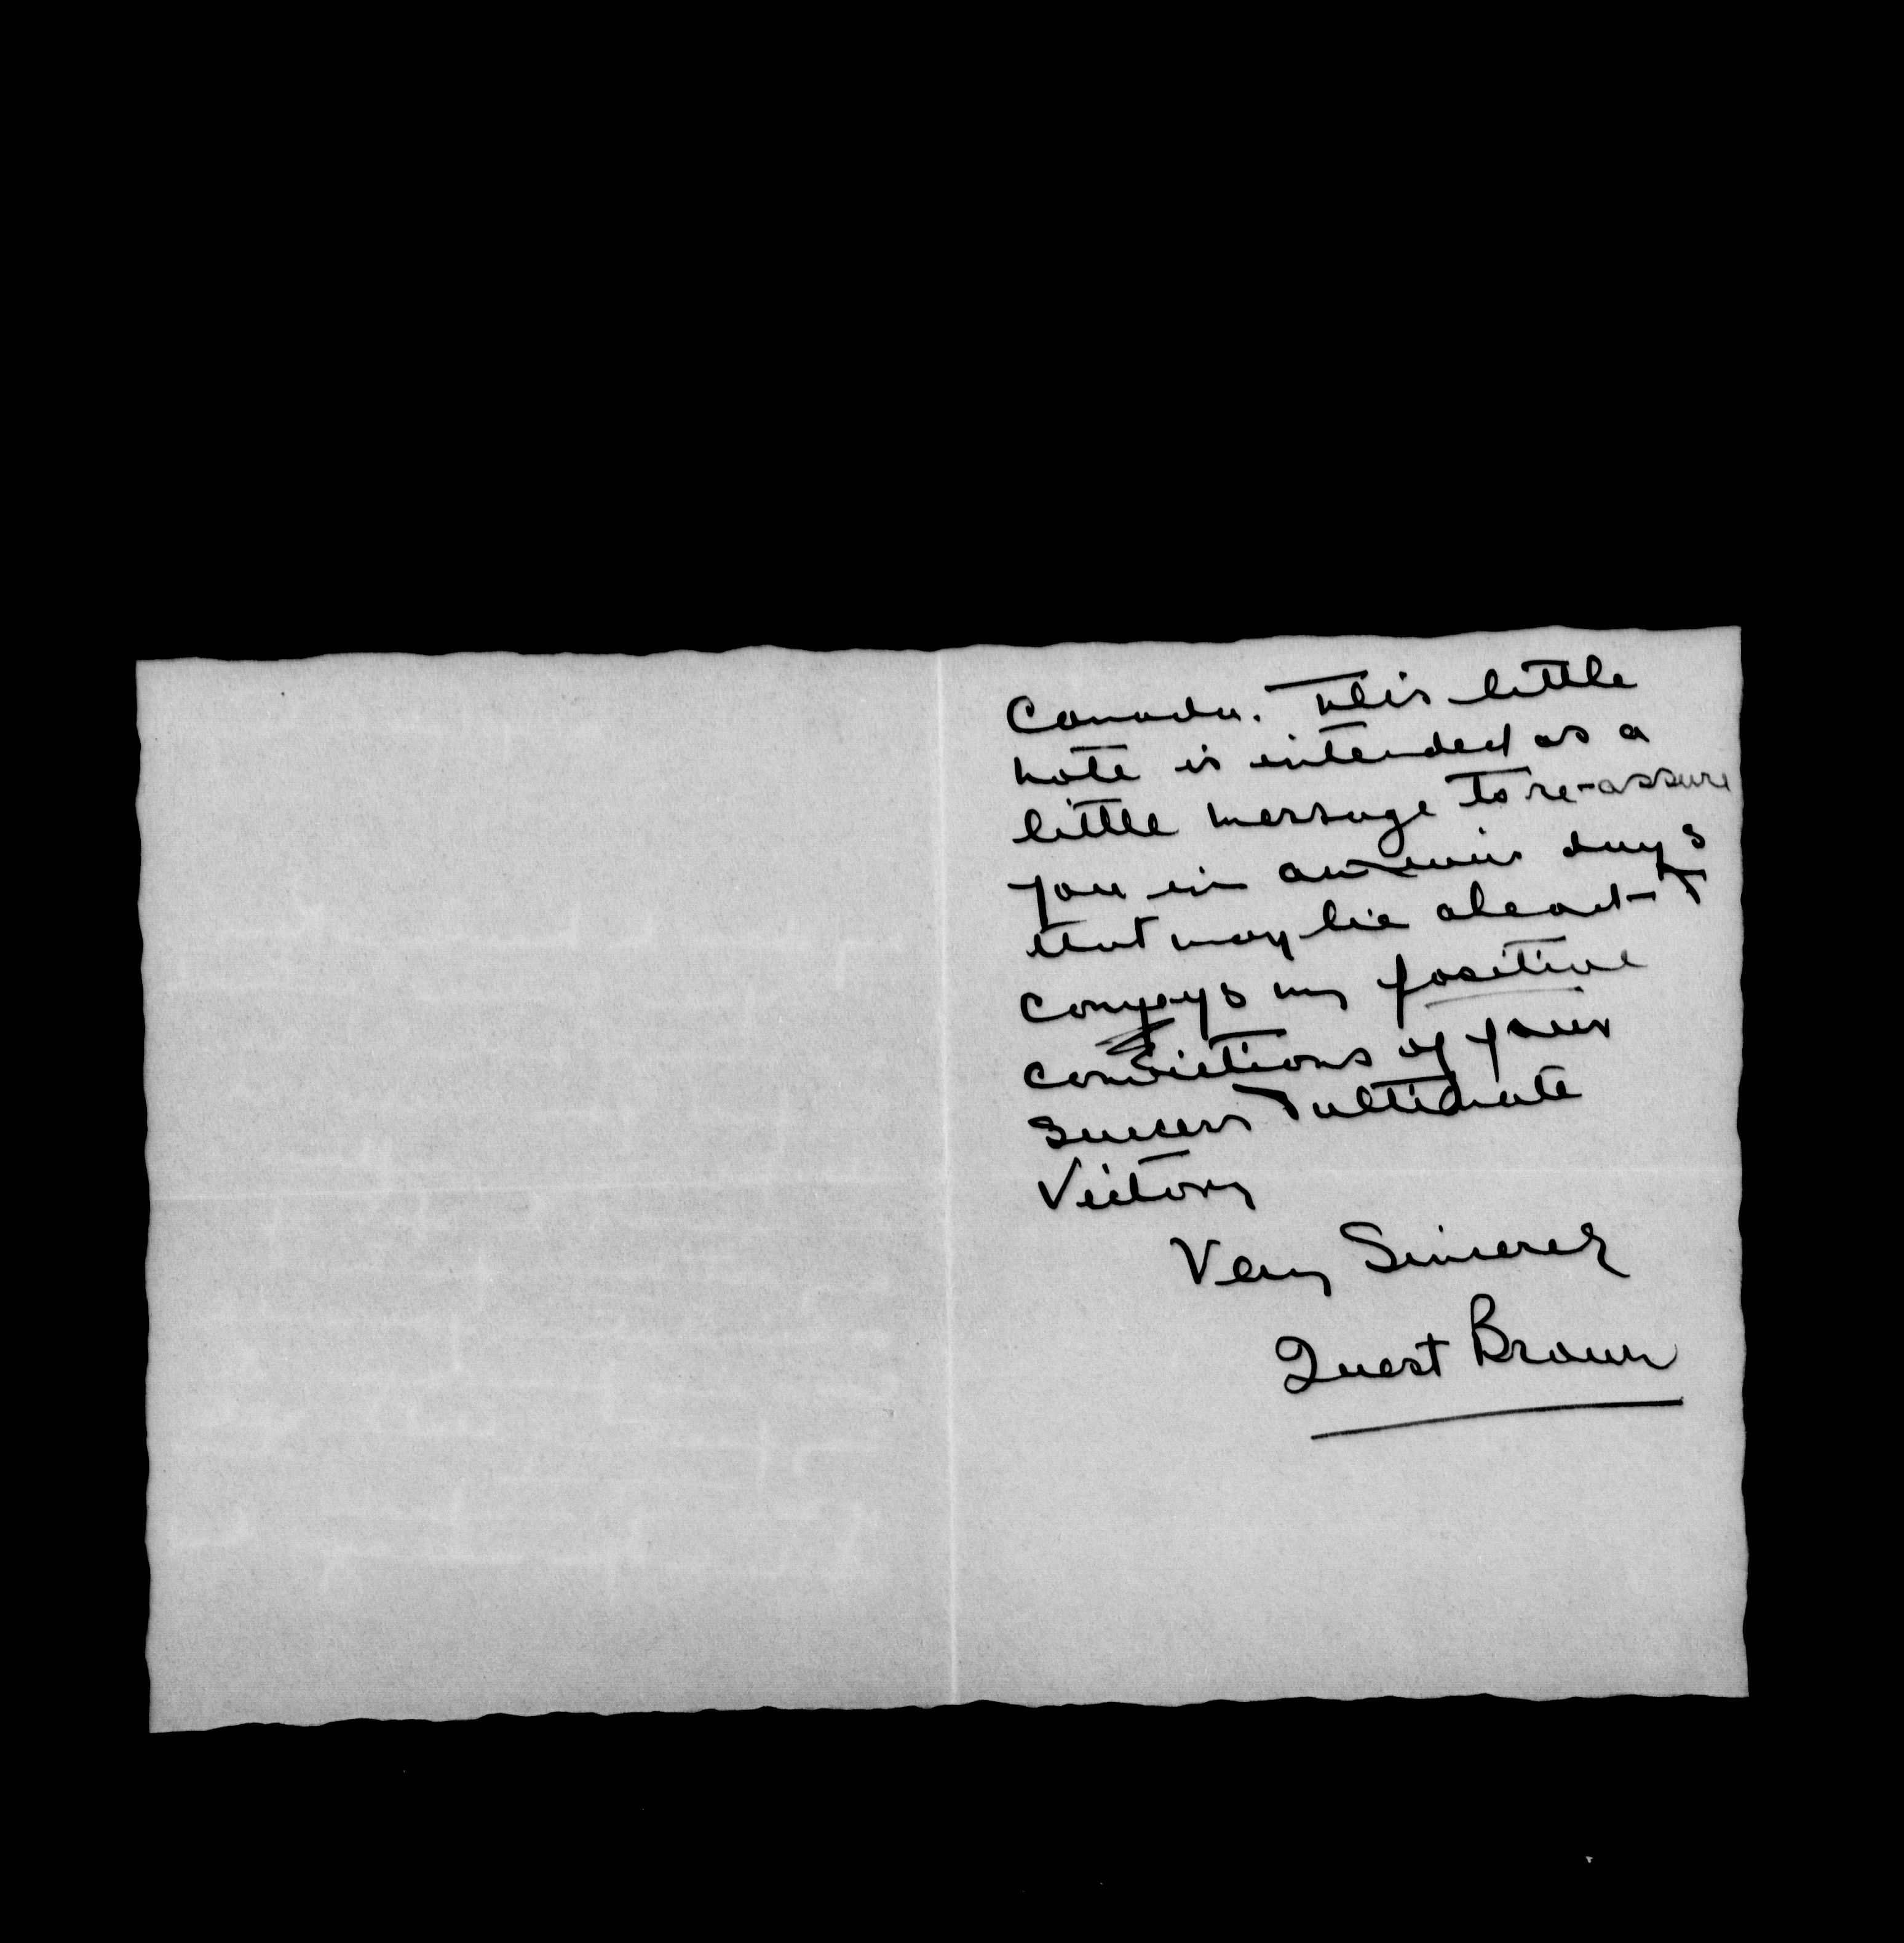 Canada. This little
note is intended as a
little message to re-assure
you in anxious days
that may lie ahead &
conveys my positive
convictions of your
success & ultimate
Victory
Very Sincerely
Quest Brown